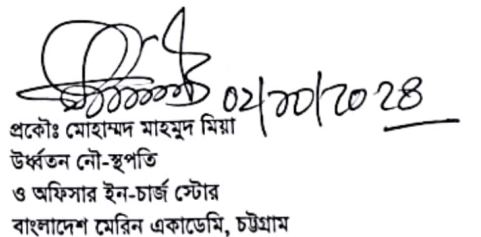 ০২/১০/২০২৪
প্রকৌঃ মোহাম্মদ মাহমুদ মিয়া
উর্ধ্বতন নৌ-স্থপতি
ও অফিসার ইন-চার্জ স্টোর
বাংলাদেশ মেরিন একাডেমি, চট্টগ্রাম